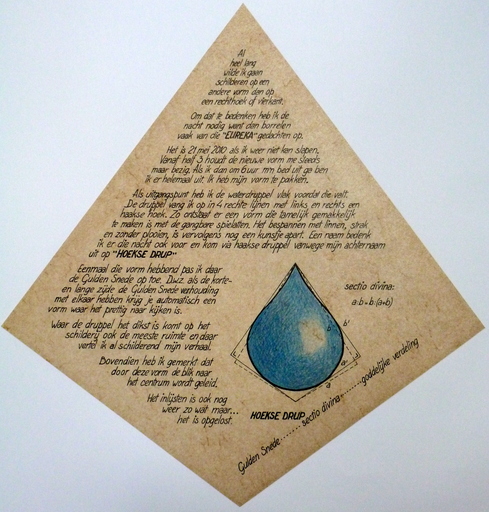 Al
heel lang
wilde ik gaan
schilderen op een
andere vorm dan op
een rechthoek of vierkant.
Om dat te bedenken heb ik de
nacht nodig want dan borrelen
vaak van die "EUREKA" gedachten op.
Het is 21 mei 2010 als ik weer niet kan slapen.
Vanaf half 3 houdt de nieuwe vorm me steeds
maar bezig. Als ik dan om 6 uur m'n bed uit ga ben
ik er helemaal uit. Ik heb mijn vorm te pakken.
Als uitgangspunt heb ik de waterdruppel vlak voordat die valt.
De druppel vang ik op in 4 rechte lijnen met links en rechts een
haakse hoek. Zo ontstaat er een vorm die tamelijk gemakkelijk
te maken is met de gangbare spielatten. Het bespannen met linnen, strak
en zonder plooien, is vervolgens nog een kunstje apart. Een naam bedenk
ik er die nacht ook voor en kom via haakse druppel vanwege mijn achternaam
uit op "HOEKSE DRUP"
Eenmaal die vorm hebbend pas ik daar
de Gulden Snede op toe. D.w.z. als de korte-
en lange zijde de Gulden Snede verhouding
met elkaar hebben kryg je automatisch een
vorm waar het prettig naar kijken is.
Waar de druppel het dikst is komt op het
schilderij ook de meeste ruimte en daar
vertel ik al schilderend mijn verhaal.
Bovendien heb ik gemerkt dat
door deze vorm de blik naar
het centrum wordt geleid.
Het inlijsten is ook nog
weer zo wat maar...
het is opgelost.
sectio divina:
a:b = b:(a+b)
b
b'
a'
a
HOEKSE DRUP
Gulden Snede........sectio divina........goddelijke verdeling